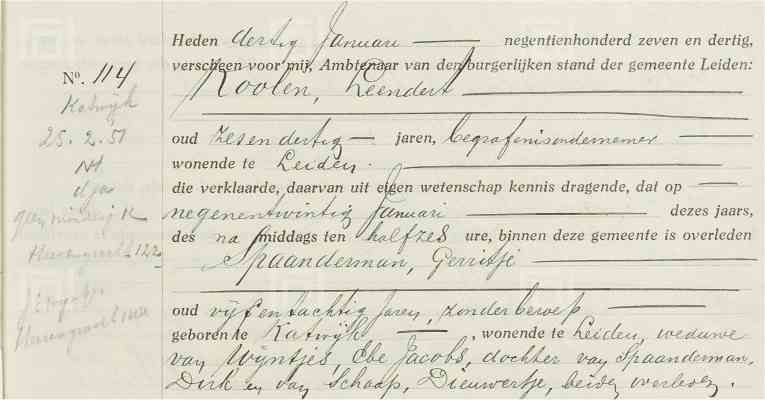 Heden dertig Januari negentienhonderd zeven en dertig,
verscheen voor mij, Ambtenaar van den burgerlijken stand der gemeente Leiden:
Nº. 114
Koolen, Leendert
Katwijk
25.2.51
oud zesendertig jaren, begrafenisondernemer
wonende te Leiden.
die verklaarde, daarvan uit eigen wetenschap kennis dragende, dat op
negenentwintig Januari dezes jaars,
des na middags ten halfzes ure, binnen deze gemeente is overleden
122
Spaanderman, Gerritje
oud vijfentachtig jaren, zonder beroep
geboren te Katwijk, wonende te Leiden, weduwe
van Wijntjes, Ebe Jacobs, dochter van Spaanderman,
Dirk en van Schaap, Dieuwertje, beiden overleden.